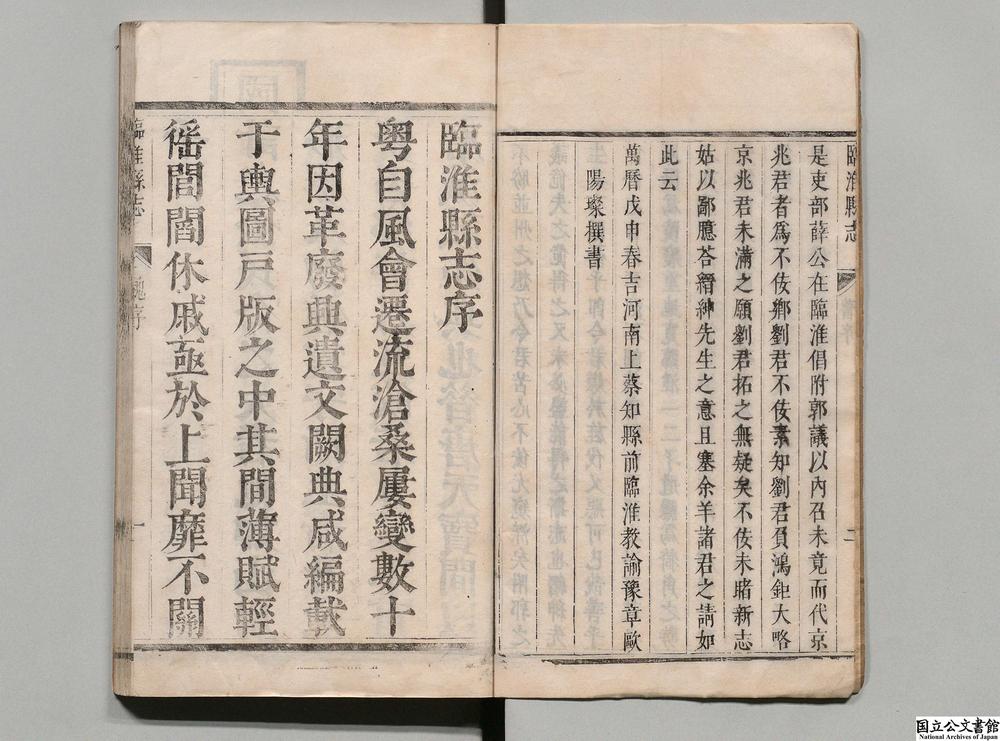 是吏部薛公在臨淮倡附郭議以內召未竟而代京
兆君者爲不佞鄉劉君不佞素知劉君負鴻鉅大略
京兆君未滿之願劉君拓之無疑矣不佞未睹新志
姑以鄙臆荅縉紳先生之意且塞余羊諸君之請如
此云
萬曆戊申春吉河南上蔡知縣前臨淮教諭豫章歐
陽燦撰書
臨淮縣志
舊序
二
臨淮縣志序
粵自風會遷流滄桑屢變數十
年因革廢興遺文闕典咸編載
于輿圖戸版之中其間薄賦輕
徭閭閻休戚亟於上聞靡不關
臨淮縣志
序
一
国立公文書館
National Archives of Japan